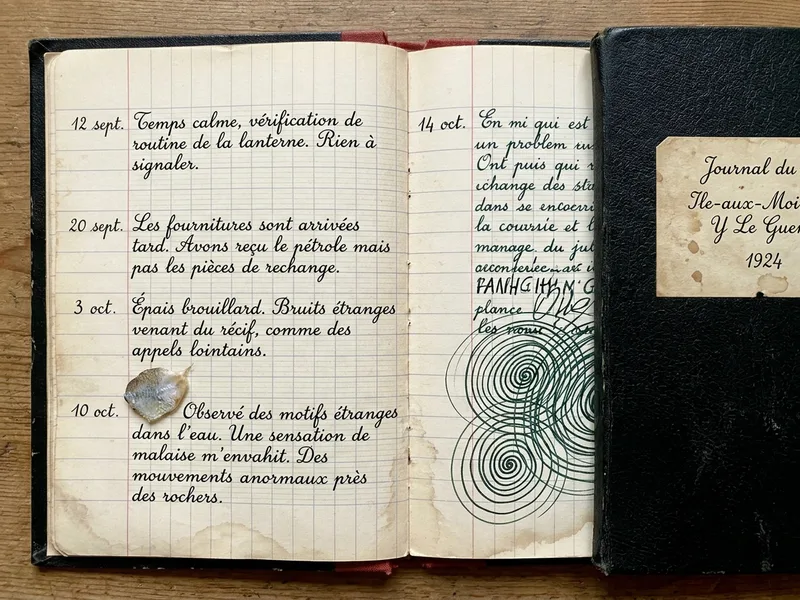 12 sept. Temps calme, vérification de
routine de la lanterne. Rien à
signaler.
20 sept. Les fournitures sont arrivées
tard. Avons reçu le pétrole mais
pas les pièces de rechange.
3 oct. Épais brouillard. Bruits étranges
venant du récif, comme des
appels lointains.
10 oct. Observé des motifs étranges
dans l'eau. Une sensation de
malaise m'envahit. Des
mouvements anormaux près
des rochers.
14 oct. En mi qui est
un problem
Ont puis qui
ichange des
dans se
la et
manage du
plance
les
Journal du
Ile-aux-Moi
Y Le Guer
1924